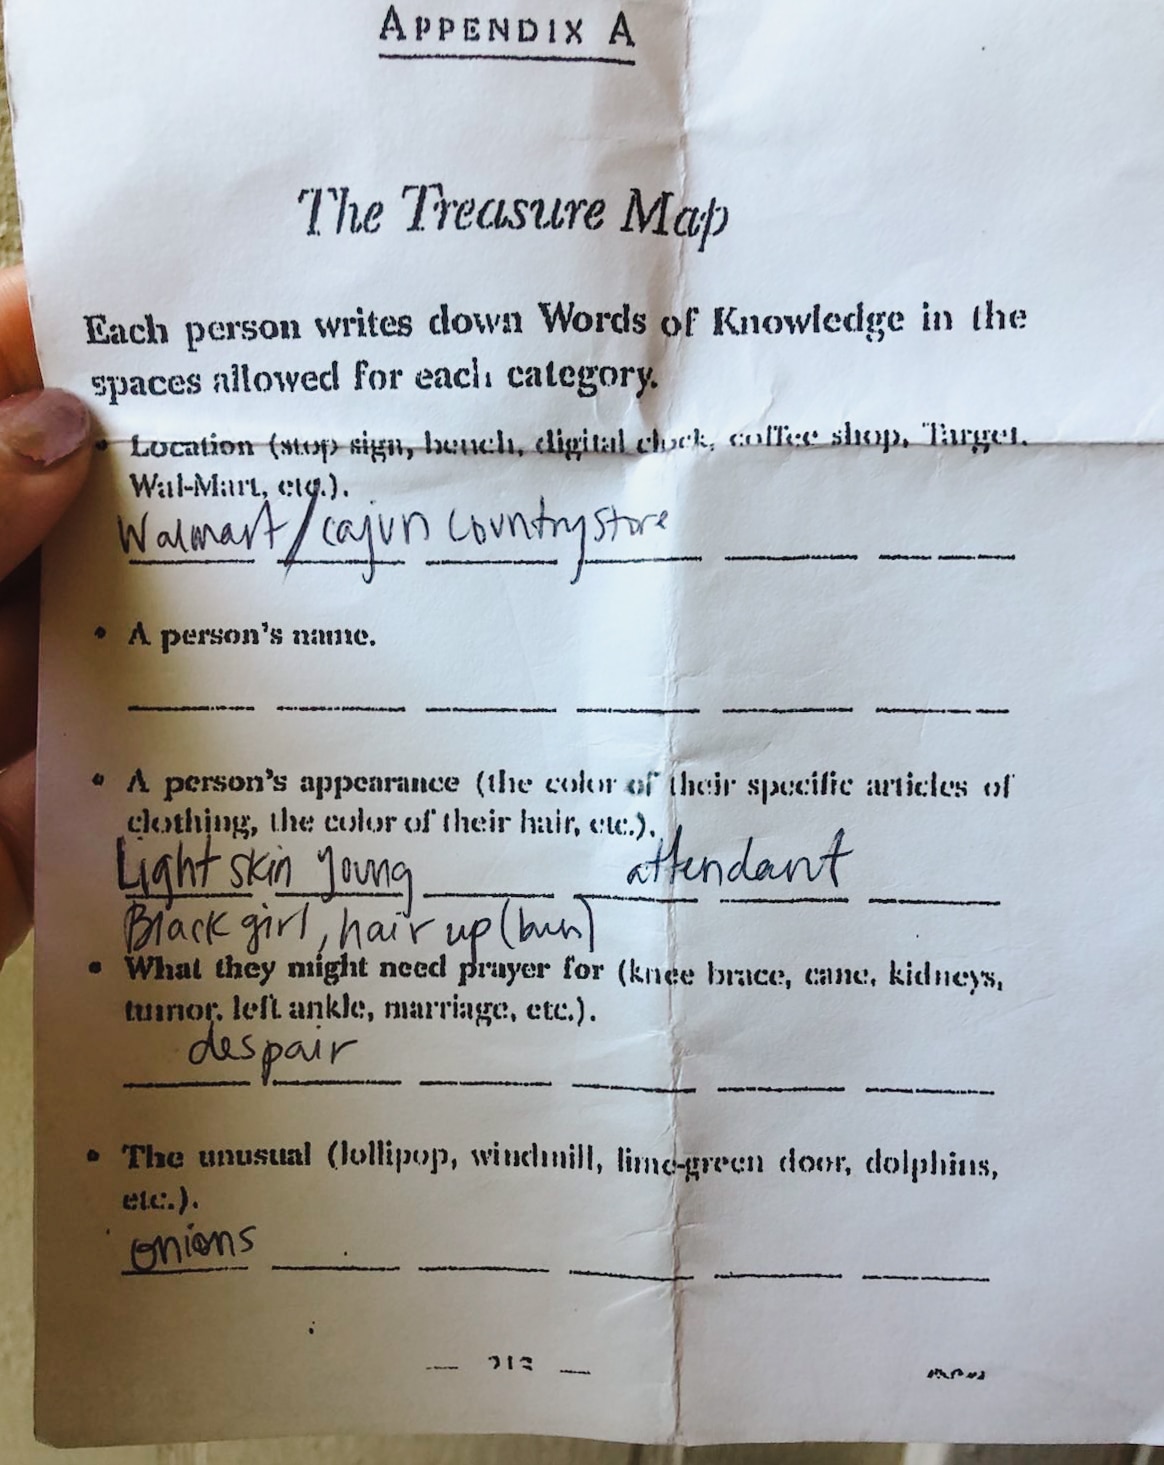 APPENDIX A
The Treasure Map
Each person writes down Words of Knowledge in the
spaces allowed for each category.
• Location (stop sign, bench, digital clock, coffee shop, Target,
Wal-Mart, etc.).
Walmart/cajun country store
• A person's name.
• A person's appearance (the color of their specific articles of
clothing, the color of their hair, etc.).
Light skin young attendant
Black girl, hair up (bun)
• What they might need prayer for (knee brace, cane, kidneys,
tumor, left ankle, marriage, etc.).
despair
• The unusual (lollipop, windmill, lime-green door, dolphins,
etc.).
onions
— 213 —